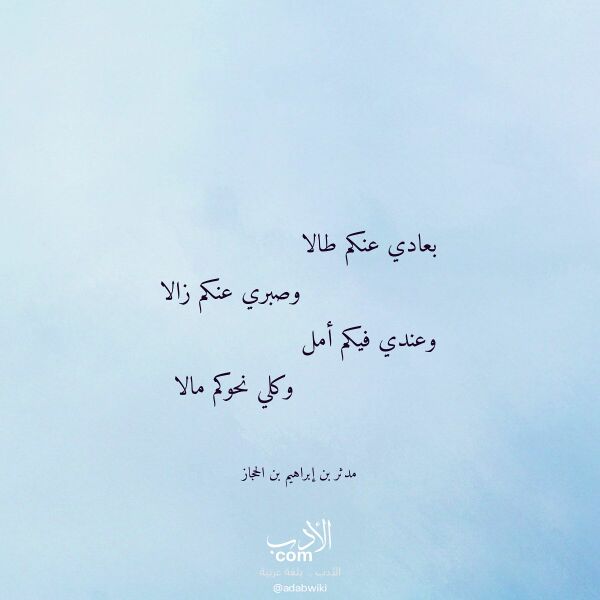 بعادي عنكم طالا
وصبري عنكم زالا
وعندي فيكم أمل
وكلي نحوكم مالا
مدثر بن إبراهيم بن الحجاز
الأدب
com
الأدب .. بلغة عربية
@adabwiki